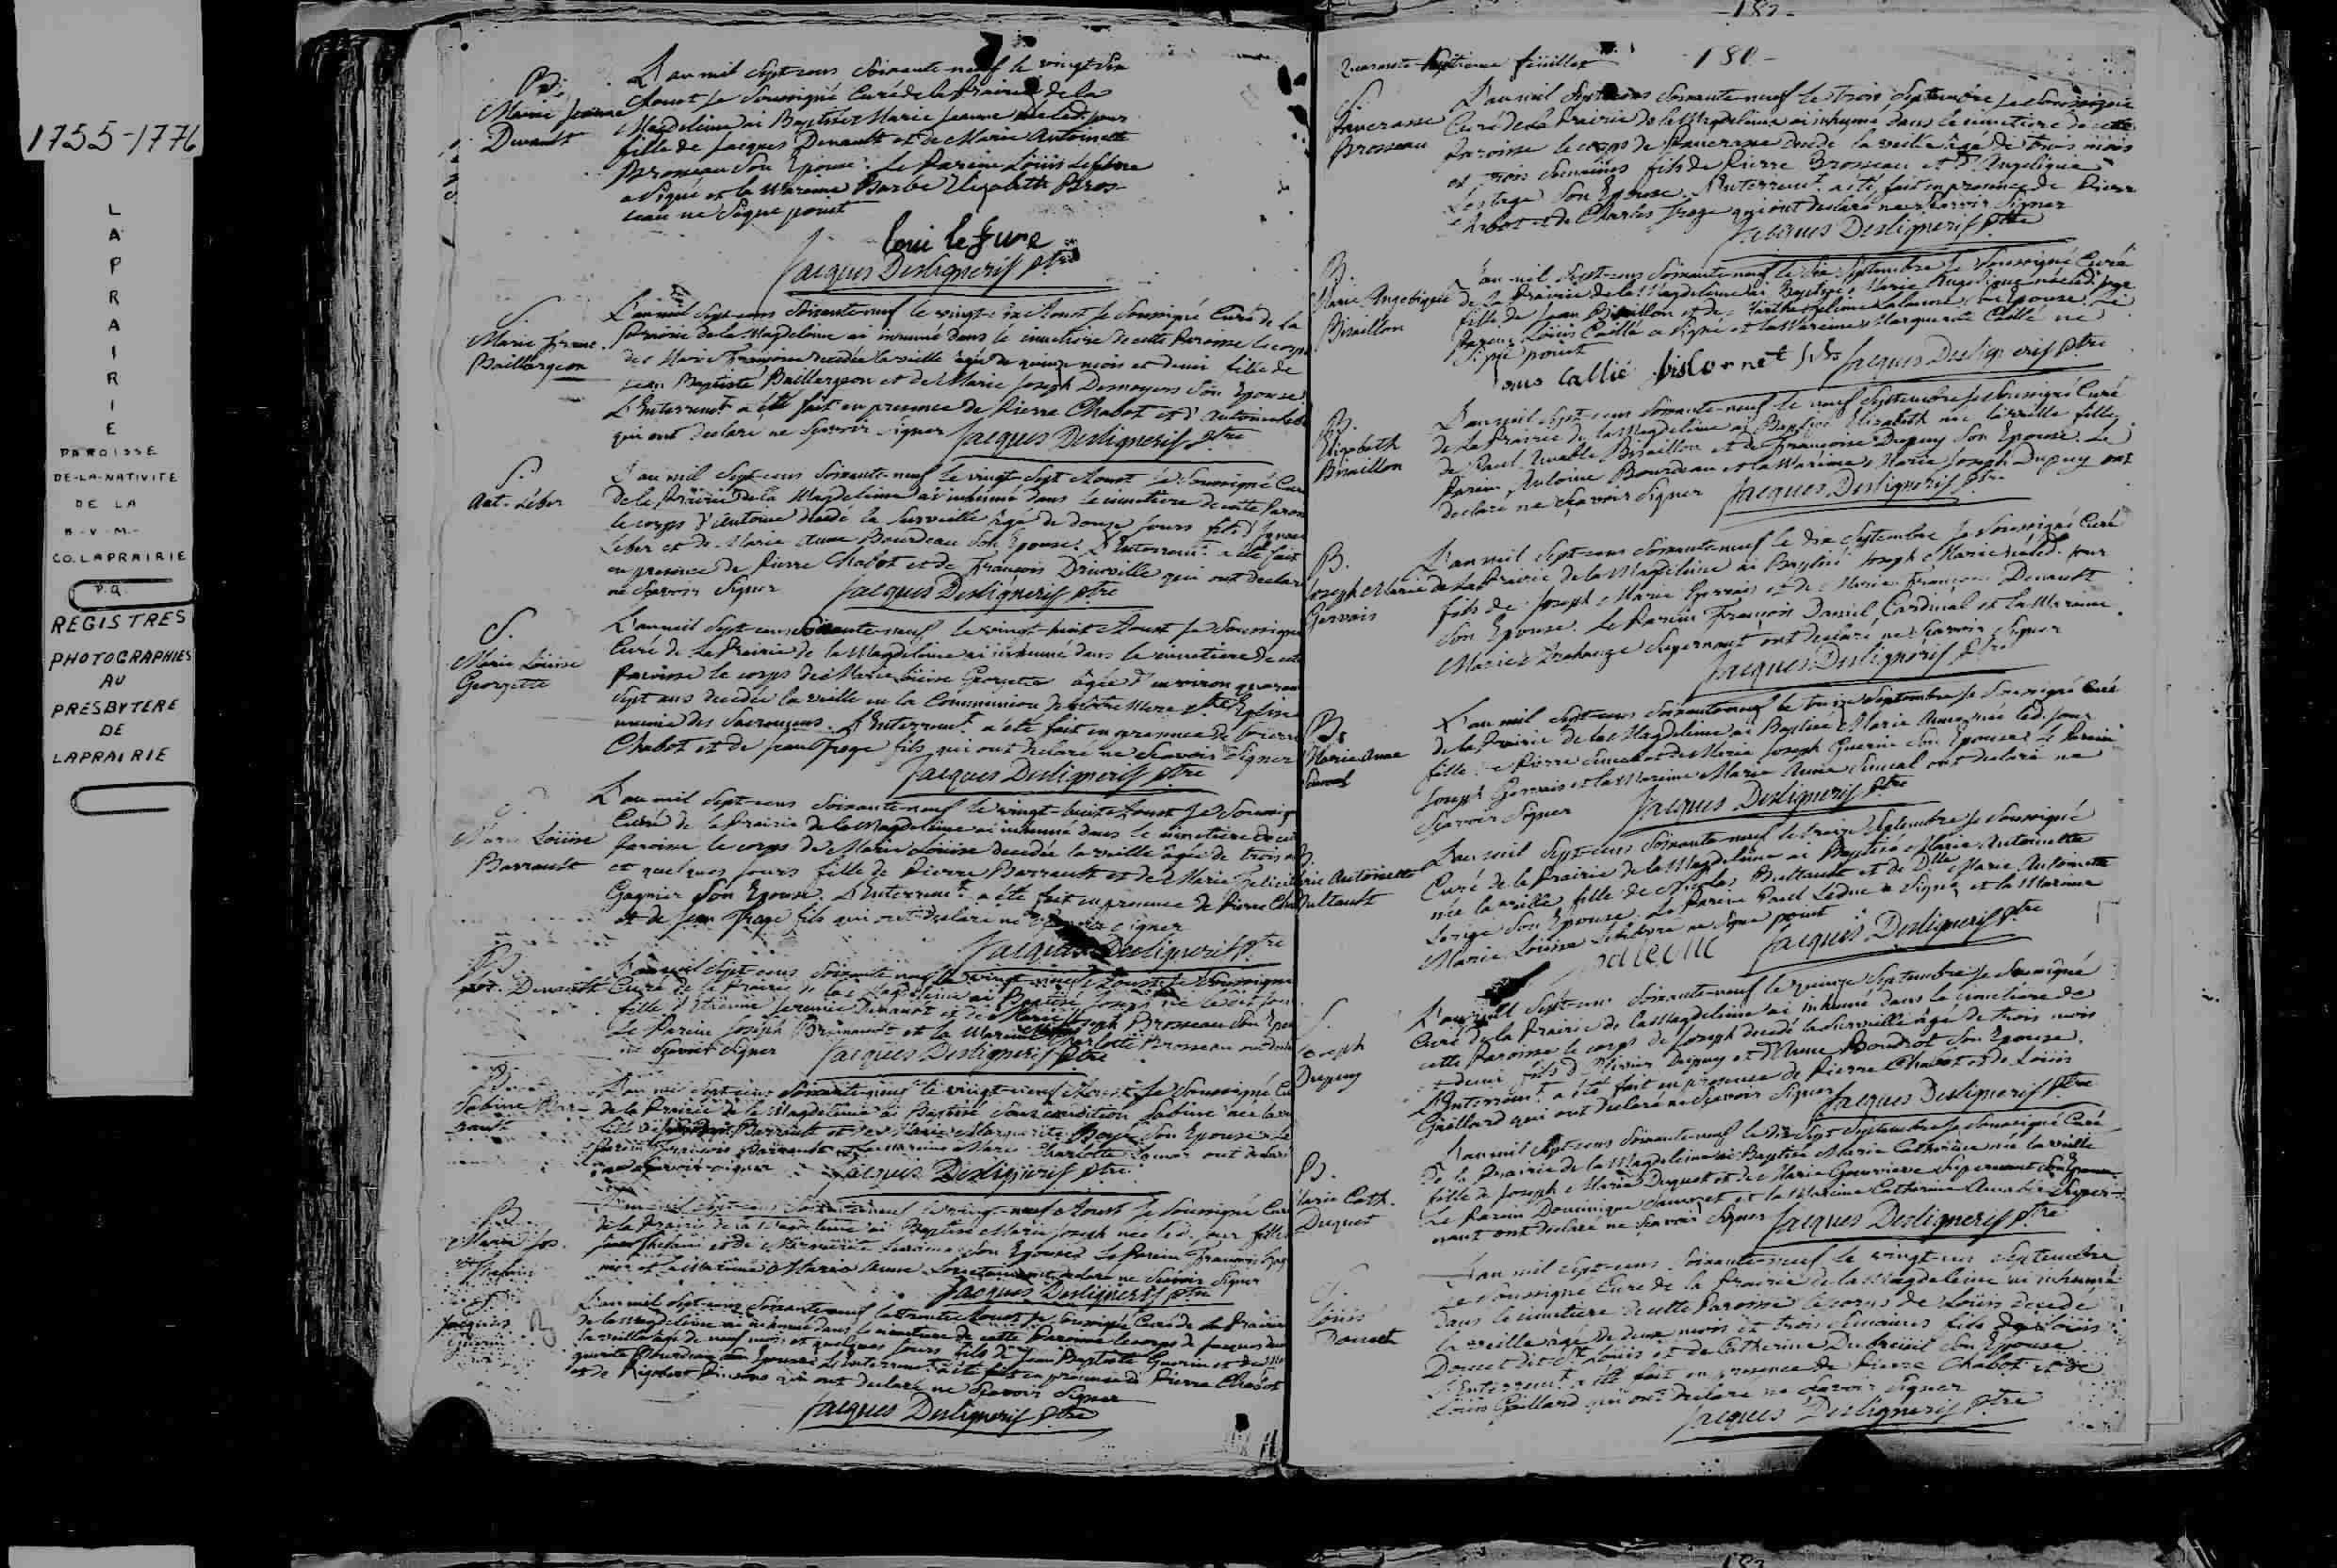 1755-1776
L
A
P
R
A
I
R
I
E
PAROISSE
DE-LA-NATIVITE
DE LA
B-V-M-
CO. LAPRAIRIE
P.Q.
REGISTRES
PHOTOGRAPHIES
AU
PRESBYTERE
DE
LAPRAIRIE
B.
Marie Jeanne
Denault
L'an mil Sept-cens Soixante-neuf le vingt Six
Aoust Je Soussigné Curé de la Prairie de la
Magdeleine ai Baptisé Marie Jeanne née led. jour
fille de Jacques Denault et de Marie Antoinette
Brosseau Son Epouse. Le Parein Loüis Lefebvre
a Signé et la Mareine Barbe Elizabeth Bros-
seau ne Signe point
loui lefevre
Jacques Deslignerif ptre
S.
Marie Franç.
Baillargeon
L'an mil Sept-cens Soixante-neuf le vingt-six Aoust Je Soussigné Curé de La
Prairie de la Magdeleine ai inhumé dans le cimetiere de cette Paroisse le corps
de Marie Françoise decedée la veille agée de quinze mois et demi fille de
Jean Baptiste Baillargeon et de Marie Joseph Desnoyers Son Epouse
L'Enterremt a été fait en presence de Pierre Chabot et d'Antoine
qui ont declaré ne Sçavoir Signer Jacques Deslignerif ptre
S.
Ant. Leber
L'an mil Sept-cens Soixante-neuf le vingt-Sept Aoust Je Soussigné Curé
de la Prairie de la Magdeleine ai inhumé dans le cimetiere de cette Paroi
le corps d'Antoine decedé la Surveille agé de douze jours fils d'Ignace
Leber et de Marie Anne Bourdeau Son Epouse. L'Enterremt. a été fait
en presence de Pierre Chabot et de François Drinville qui ont declaré
ne Sçavoir Signer Jacques Deslignerif ptre
S.
Marie Loüise
Georgette
L'an mil Sept-cens Soixante-neuf le vingt-huit Aoust Je Soussigné
Curé de La Prairie de la Magdeleine ai inhumé dans le cimetiere de cette
Paroisse le corps de Marie Loüise Georgette âgée d'environ quarante
Sept ans decedée la veille en la Communion de Nôtre Mere Ste Eglise
munie des Sacremens. L'Enterremt. a été fait en presence de Pierre
Chabot et de Jean Frage fils qui ont declaré ne Sçavoir Signer
Jacques Deslignerif ptre
Marie Loüise
Barrault
L'an mil Sept-cens Soixante-neuf le vingt-huit Aoust Je Soussig
Curé de la Prairie de la Magdeleine ai inhumé dans le cimetiere de cet
Paroisse le corps de Marie Loüise decedée la veille âgée de trois
et quelques jours fille de Pierre Barrault et de Marie Felicité
Gagnier Son Epouse. L'Enterremt. a été fait en presence de Pierre Cha
et de Jean Frage fils qui ont declaré ne Sçavoir Signer
Jacques Deslignerif ptre
Denault
L'an mil Sept-cens Soixante neuf le vingt-neuf Aoust Je Soussigné
Curé de la Prairie de la Magdeleine ai Baptisé Joseph né le dit jour
fille d'Etienne Denault et de Marie Joseph Brosseau Son Epou
Le Parein Joseph et la Mareine Charlotte Brosseau ont decla
ne Sçavoir Signer Jacques Deslignerif ptre
B.
Sabine Bar-
rault
L'an mil Sept-cens Soixante-neuf le vingt-neuf Aoust Je Soussigné Cu
de la Prairie de la Magdeleine ai Baptisé Sous condition Sabine née la
Barrault et de Marie Marguerite Son Epouse Le
Parein François Barrault et la Mareine Marie Charlotte ont declaré
ne Sçavoir signer Jacques Deslignerif ptre
B
Marie Jos.
L'an mil Sept-cens Soixante neuf le vingt-neuf Aoust Je Soussigné Curé
de la Prairie de la Magdeleine ai Baptisé Marie Joseph née led. jour fille
et de Son Epouse Le Parein François
et la Mareine Marie Anne ont declaré ne Sçavoir Signer
Jacques Deslignerif ptre
S.
Jacques
Guerin
L'an mil Sept-cens Soixante-neuf le trente Aoust Je Soussigné Curé de la Prairie
de la Magdeleine ai inhumé dans le cimetiere de cette Paroisse le corps de Jacques
la veille agé de neuf mois et quelques jours fils de Jean Baptiste Guerin et de Mar
guerite Bourdeau Son Epouse L'Enterremt. a été fait en presence de Pierre Chabot
et de Rigobert qui ont declaré ne Sçavoir Signer
Jacques Deslignerif ptre
Quarante Septieme feüillet
-180-
S.
Pancrasse
Brosseau
L'an mil Sept-cens Soixante-neuf le trois Septembre Je Soussigné
Curé de La Prairie de la Magdeleine ai inhumé dans le cimetiere de cette
Paroisse le corps de Pancrasse decedé la veille âgé de trois mois
et trois Semaines fils de Pierre Brosseau et d'Angelique
Lestage Son Epouse. L'Enterremt. a été fait en presence de Pierre
Chabot et de Charles Frage qui ont declaré ne Sçavoir Signer
Jacques Deslignerif ptre
B.
Marie Angelique
Bisaillon
L'an mil Sept-cens Soixante-neuf le Six Septembre Je Soussigné Curé
de la Prairie de la Magdeleine ai Baptisé Marie Angelique née led. jour
fille de Jean Bisaillon et de Marthe Celeine Lalanne Son Epouse. Le
Parein Loüis Caillé a Signé et la Mareine Marguerite Caillé ne
Signe point
Jacques Deslignerif ptre
B.
Elizabeth
Bisaillon
L'an mil Sept-cens Soixante-neuf le neuf Septembre Je Soussigné Curé
de La Prairie de la Magdeleine ai Baptisé Elizabeth née la veille fille
de Paul Amable Bisaillon et de Françoise Dupuy Son Epouse. Le
Parein Antoine Bourdeau et la Mareine Marie Joseph Dupuy ont
declaré ne Sçavoir Signer Jacques Deslignerif ptre
B.
Joseph Marie
Gervais
L'an mil Sept-cens Soixante-neuf le dix Septembre Je Soussigné Curé
de La Prairie de la Magdeleine ai Baptisé Joseph Marie né led. jour
fils de Joseph Marie Gervais et de Marie Françoise Denault
Son Epouse. Le Parein François Daniel Cardinal et la Mareine
Marie Archange Supernant ont declaré ne Sçavoir Signer
Jacques Deslignerif ptre
B.
Marie Anne
L'an mil Sept-cens Soixante-neuf le treize Septembre Je Soussigné Curé
de la Prairie de la Magdeleine ai Baptisé Marie Anne née led. jour
fille de Pierre et de Marie Joseph Guerin Son Epouse Le Parein
Joseph Gervais et la Mareine Marie Anne ont declaré ne
Sçavoir Signer Jacques Deslignerif ptre
B.
Marie Antoinette
Bultault
L'an mil Sept-cens Soixante-neuf le treize Septembre Je Soussigné
Curé de la Prairie de la Magdeleine ai Baptisé Marie Antoinette
née la veille fille de Nicolas Bultault et de Dlle Marie Antoinette
Son Epouse. Le Parein Paul Leduc a Signé et la Mareine
Marie Loüise Lefebvre ne Signe point
Jacques Deslignerif ptre
S.
Joseph
Dupuy
L'an mil Sept-cens Soixante-neuf le quinze Septembre Je Soussigné
Curé de la Prairie de la Magdeleine ai inhumé dans le cimetiere de
cette Paroisse le corps de Joseph decedé la Surveille âgé de trois mois
et demi fils d'Olivier Dupuy et d'Anne Boudrot Son Epouse.
L'Enterremt. a été fait en presence de Pierre Chabot et de Loüis
Gaillard qui ont declaré ne Sçavoir Signer Jacques Deslignerif ptre
B.
Marie Cath.
Duquet
L'an mil Sept-cens Soixante-neuf le dix Sept Septembre Je Soussigné Curé
de la Prairie de la Magdeleine ai Baptisé Marie Catherine née la veille
fille de Joseph Marie Duquet et de Marie Genevieve Supernant Son Epouse
Le Parein Dominique et la Mareine Catherine Amable Super-
nant ont declaré ne Sçavoir Signer Jacques Deslignerif ptre
S.
Loüis
Doucet
L'an mil Sept-cens Soixante-neuf le vingt-un Septembre
Je Soussigné Curé de la Prairie de la Magdeleine ai inhumé
dans le cimetiere de cette Paroisse le corps de Loüis decedé
la veille âgé de deux mois et trois Semaines fils de Loüis
Doucet dit St Loüis et de Catherine Dubreüil Son Epouse
L'Enterremt. a été fait en presence de Pierre Chabot et de
Loüis Gaillard qui ont declaré ne Sçavoir Signer
Jacques Deslignerif ptre